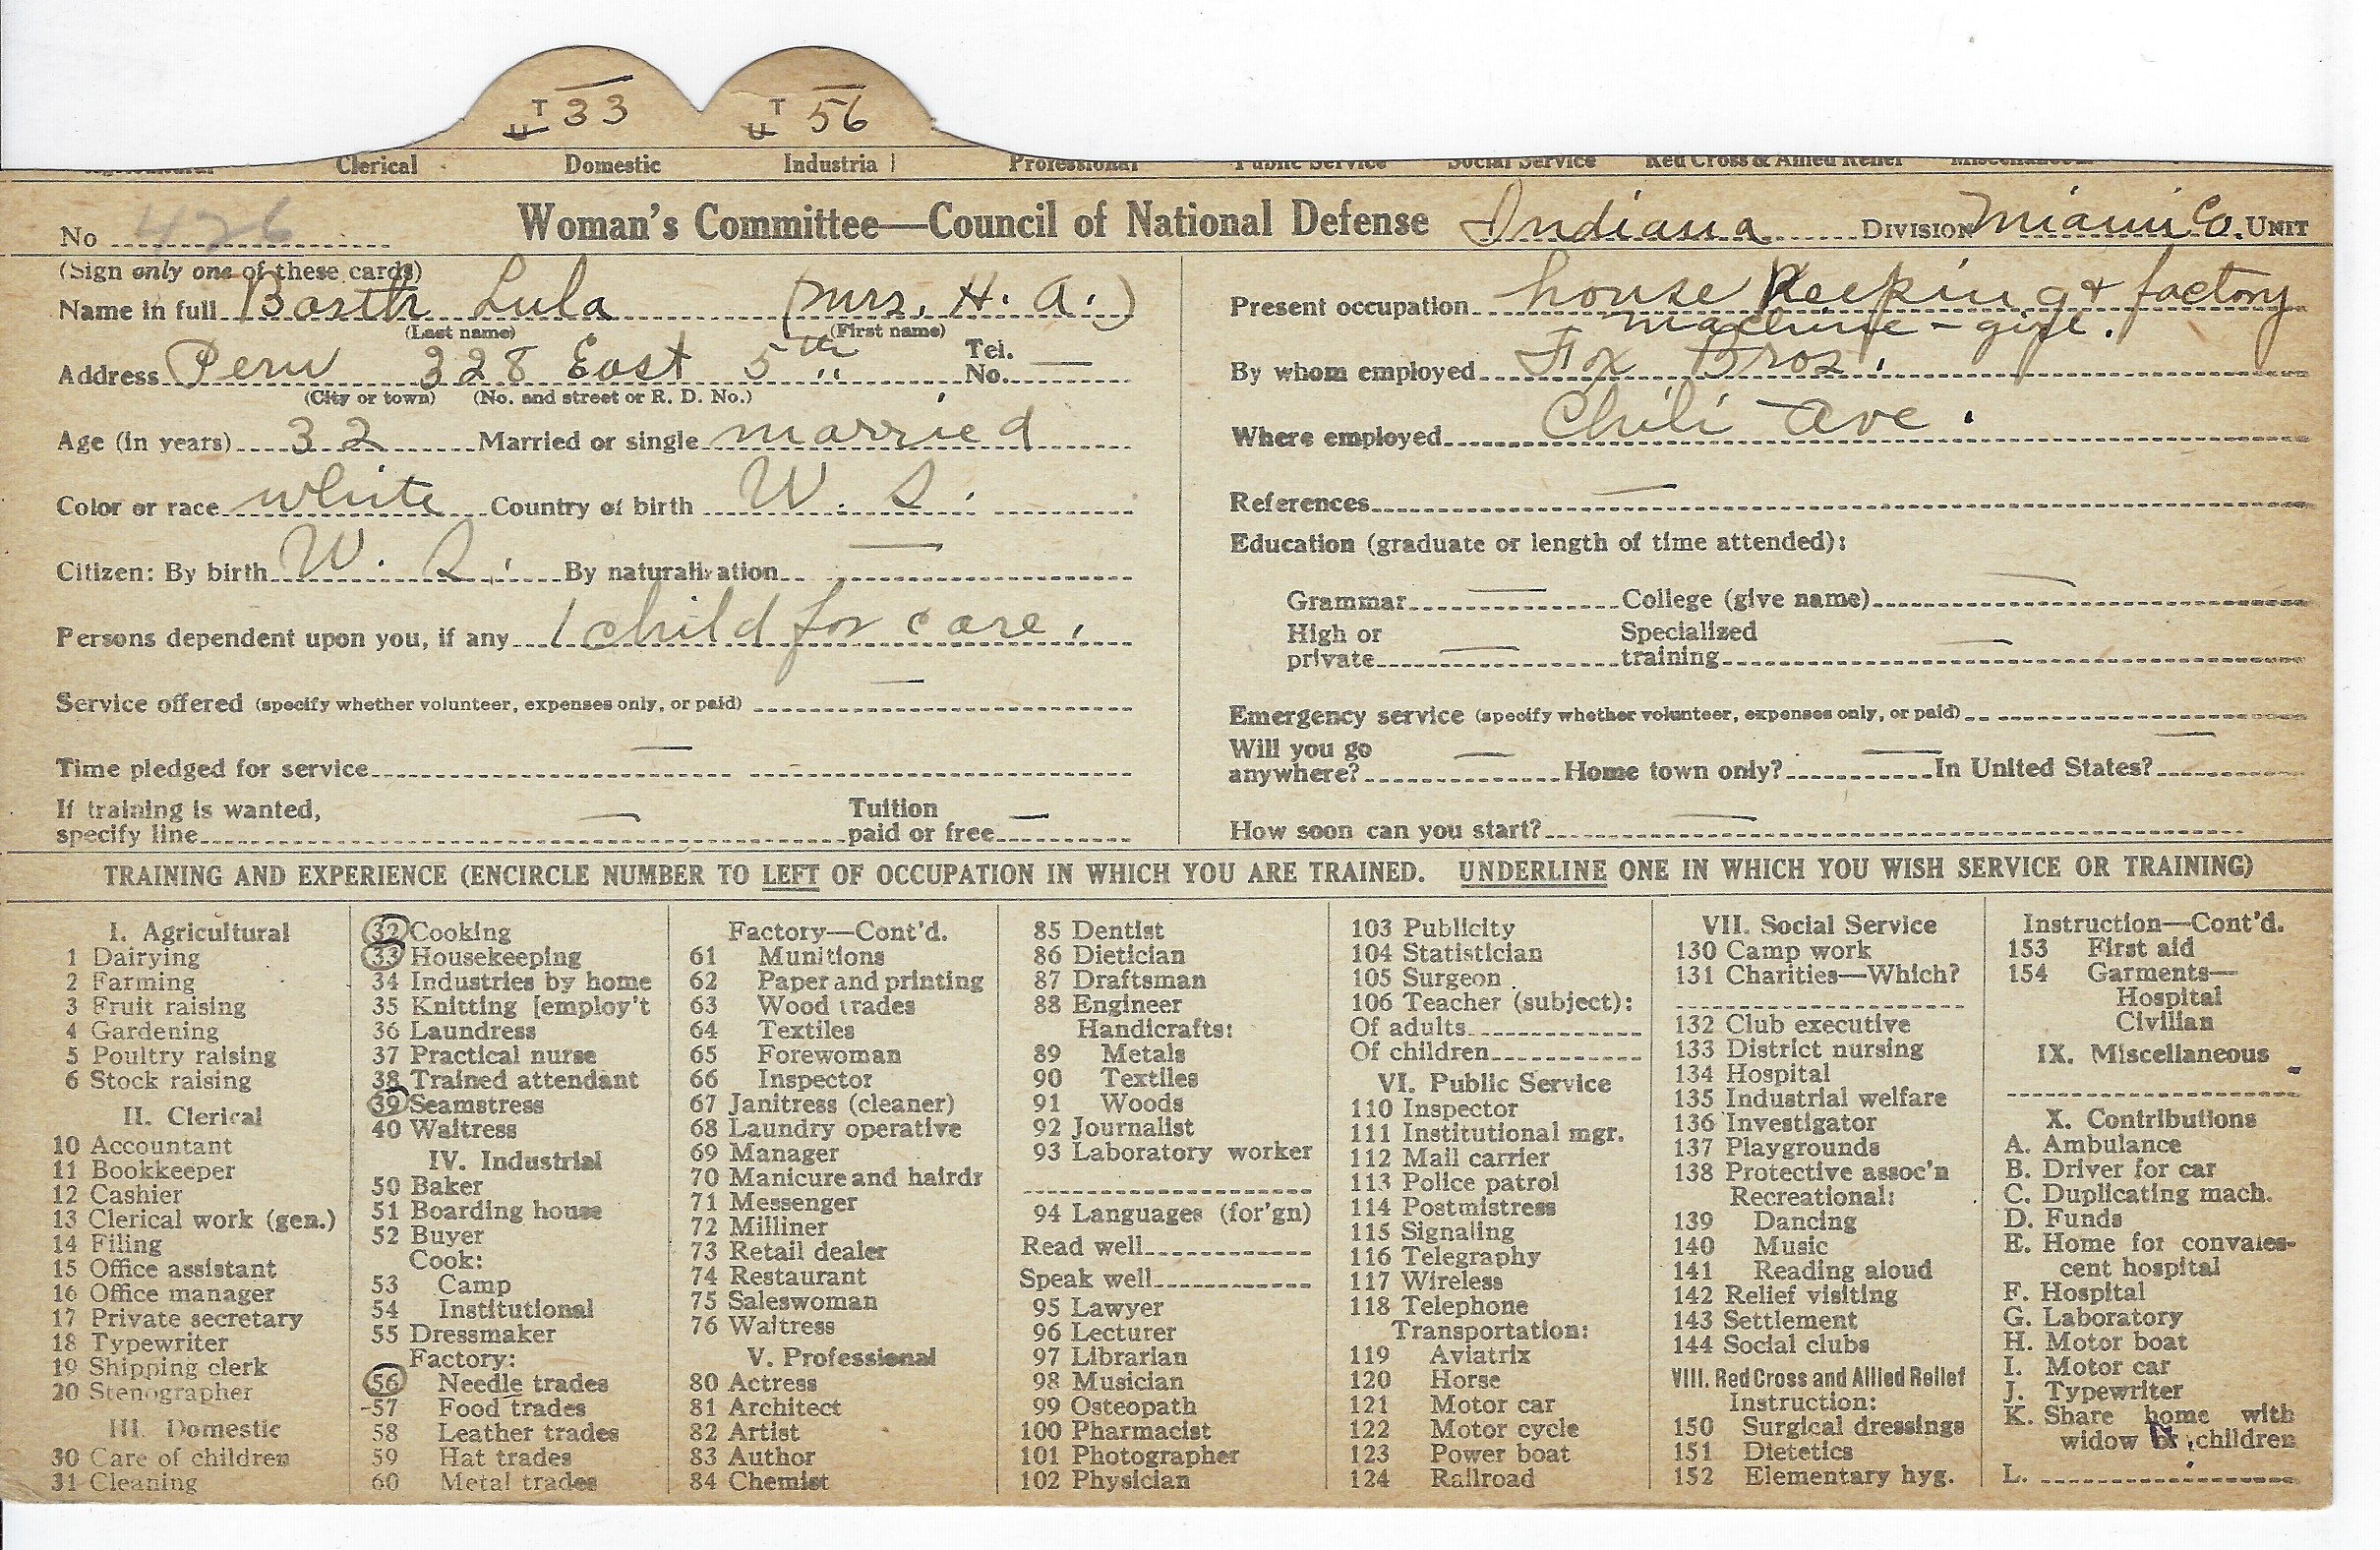 T 33 T 56
U U
Clerical Domestic Industrial Professional Public Service Social Service Red Cross & Allied Relief
No 426 Woman's Committee—Council of National Defense Indiana DIVISION Miami Co. UNIT
(Sign only one of these cards)
Name in full Barth Lula (Mrs. H. A.)
(Last name) (First name)
Address Peru 328 East 5th Tel. No. —
(City or town) (No. and street or R. D. No.)
Age (in years) 32 Married or single married
Color or race white Country of birth U. S.
Citizen: By birth U. S. By naturalization —
Persons dependent upon you, if any 1 child for care.
Service offered (specify whether volunteer, expenses only, or paid) —
Time pledged for service —
If training is wanted,
specify line — Tuition paid or free —
Present occupation house keeping & factory
machine-girl.
By whom employed Fox Bros.
Where employed Chili Ave.
References —
Education (graduate or length of time attended):
Grammar — College (give name) —
High or private — Specialized training —
Emergency service (specify whether volunteer, expenses only, or paid) —
Will you go
anywhere? — Home town only? — In United States? —
How soon can you start? —
TRAINING AND EXPERIENCE (ENCIRCLE NUMBER TO LEFT OF OCCUPATION IN WHICH YOU ARE TRAINED. UNDERLINE ONE IN WHICH YOU WISH SERVICE OR TRAINING)
I. Agricultural
1 Dairying
2 Farming
3 Fruit raising
4 Gardening
5 Poultry raising
6 Stock raising
II. Clerical
10 Accountant
11 Bookkeeper
12 Cashier
13 Clerical work (gen.)
14 Filing
15 Office assistant
16 Office manager
17 Private secretary
18 Typewriter
19 Shipping clerk
20 Stenographer
III. Domestic
30 Care of children
31 Cleaning
32 Cooking
33 Housekeeping
34 Industries by home
35 Knitting [employ't
36 Laundress
37 Practical nurse
38 Trained attendant
39 Seamstress
40 Waitress
IV. Industrial
50 Baker
51 Boarding house
52 Buyer
Cook:
53 Camp
54 Institutional
55 Dressmaker
Factory:
56 Needle trades
57 Food trades
58 Leather trades
59 Hat trades
60 Metal trades
Factory—Cont'd.
61 Munitions
62 Paper and printing
63 Wood trades
64 Textiles
65 Forewoman
66 Inspector
67 Janitress (cleaner)
68 Laundry operative
69 Manager
70 Manicure and hairdr
71 Messenger
72 Milliner
73 Retail dealer
74 Restaurant
75 Saleswoman
76 Waitress
V. Professional
80 Actress
81 Architect
82 Artist
83 Author
84 Chemist
85 Dentist
86 Dietician
87 Draftsman
88 Engineer
Handicrafts:
89 Metals
90 Textiles
91 Woods
92 Journalist
93 Laboratory worker
94 Languages (for'gn)
Read well
Speak well
95 Lawyer
96 Lecturer
97 Librarian
98 Musician
99 Osteopath
100 Pharmacist
101 Photographer
102 Physician
103 Publicity
104 Statistician
105 Surgeon
106 Teacher (subject):
Of adults
Of children
VI. Public Service
110 Inspector
111 Institutional mgr.
112 Mail carrier
113 Police patrol
114 Postmistress
115 Signaling
116 Telegraphy
117 Wireless
118 Telephone
Transportation:
119 Aviatrix
120 Horse
121 Motor car
122 Motor cycle
123 Power boat
124 Railroad
VII. Social Service
130 Camp work
131 Charities—Which?
132 Club executive
133 District nursing
134 Hospital
135 Industrial welfare
136 Investigator
137 Playgrounds
138 Protective assoc'n
Recreational:
139 Dancing
140 Music
141 Reading aloud
142 Relief visiting
143 Settlement
144 Social clubs
VIII. Red Cross and Allied Relief
Instruction:
150 Surgical dressings
151 Dietetics
152 Elementary hyg.
Instruction—Cont'd.
153 First aid
154 Garments—
Hospital
Civilian
IX. Miscellaneous
X. Contributions
A. Ambulance
B. Driver for car
C. Duplicating mach.
D. Funds
E. Home for convales-
cent hospital
F. Hospital
G. Laboratory
H. Motor boat
I. Motor car
J. Typewriter
K. Share home with
widow or children
L.